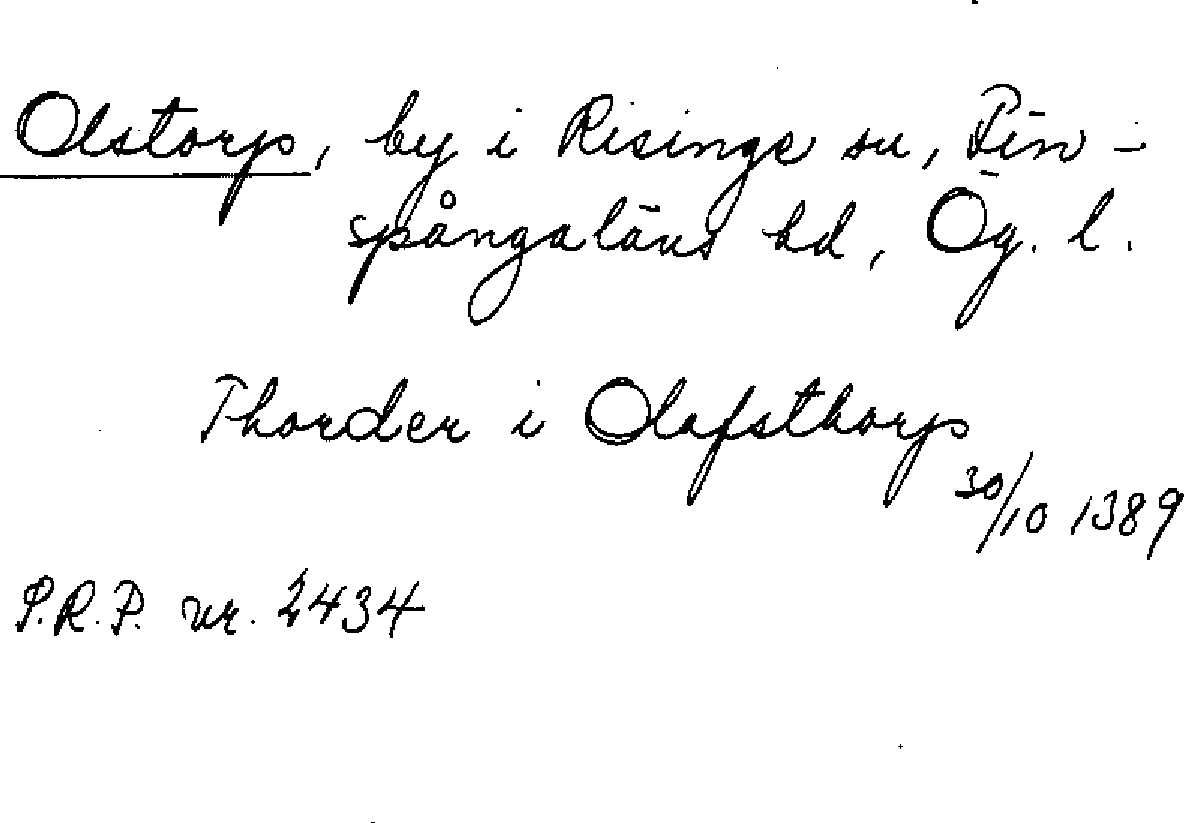 Olstorp, by i Risinge sn, Fin-
spångaläns hd, Ög. l.
Thorder i Olafsthorp
30/10 1389
P.R.P. nr. 2434